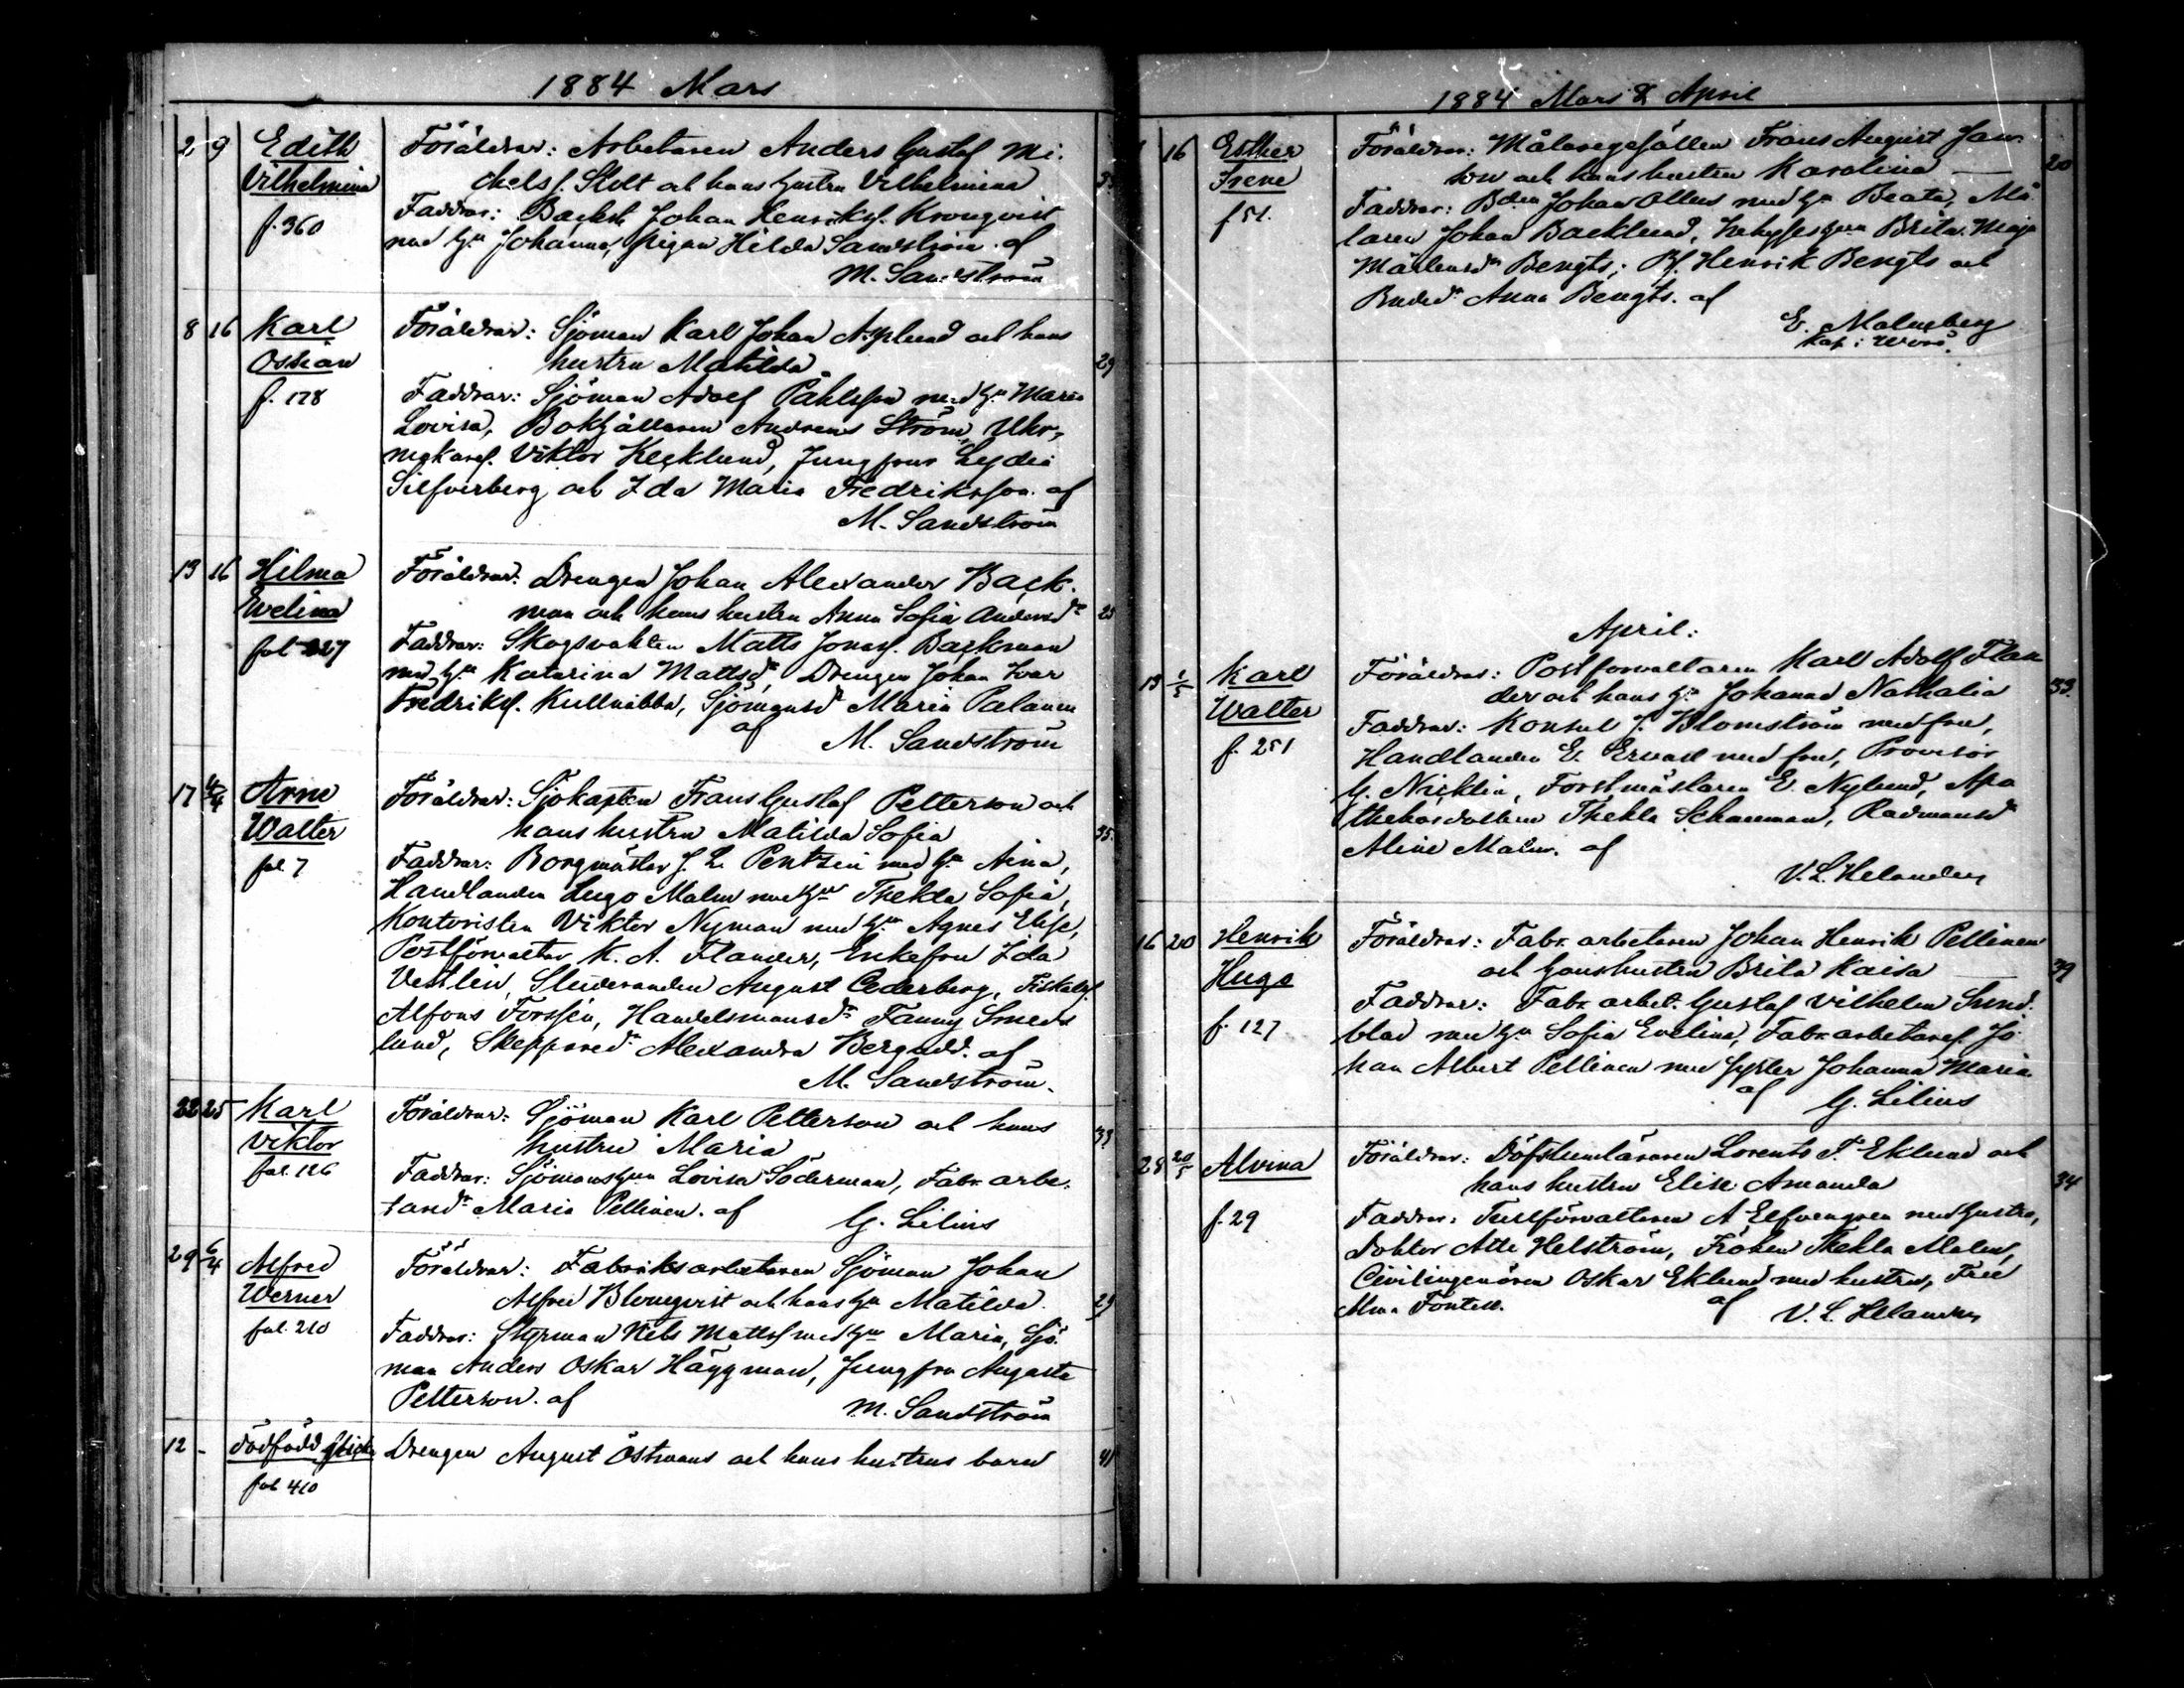 1884 Mars
2 9 Edith Föräldrar: Arbetaren Anders Gustaf Mi-
Vilhelmina chelss. Slott och hans hustru Vilhelmina
f. 360 Faddrar: Johan Henrikss. Kronqvist
med hu Johanna, pigan Hilda Sandström. af
M. Sandström
8 16 Karl Föräldrar: Sjöman Karl Johan Asplund och hans
Ossian hustru Matilda 29
f. 178 Faddrar: Sjöman Adolf Påhlsson med hu Maria
Lovisa, Bokhållaren Andreas Ström, Uhr-
makaref. Viktor Kecklund, Jungfrur Lydia
Silfverberg och Ida Maria Fredriksson. af
M. Sandström
13 16 Hilma Föräldrar: Drengen Johan Alexander Back-
Evelina man och hans hustru Anna Sofia Andersdr 25
fol 227 Faddrar: Skogsvakten Matts Jonass. Backman
med hu Katarina Mattsdr, Drengen Johan Ivar
Fredrikss. Kullnabba, Sjömansdr Maria Palanen
af M. Sandström
17 4/4 Arne Föräldrar: Sjökapten Frans Gustaf Petterson och
Walter hans hustru Matilda Sofia 35.
fol. 7 Faddrar: Borgmästar J. L. Pentzin med hu Aina,
Handlanden Hugo Malm med hu Thekla Sofia,
Kontoristen Viktor Nyman med hu Agnes Elise,
Postförvaltar K. A. Flander, Enkefru Ida
Vestlin, Studeranden August Cederberg, Fiskalsf.
Alfons Forssén, Handelsmansdr Fanny Smeds
lund, Skepparedr Alexandra Bergudd. af
M. Sandström.
22 25 Karl Föräldrar: Sjöman Karl Petterson och hans
Viktor hustru Maria 33
fol. 126 Faddrar: Sjömanshun Lovisa Söderman, Fabr. arbe-
taredr Maria Pellinen. af G. Lilius
29 6/4 Alfred Föräldrar: Fabriksarbetaren Sjöman Johan
Werner Alfred Blomqvist och hans hu Matilda. 29
fol. 210 Faddrar: Styrman Nils Mattss med hu Maria, Sjö-
man Anders Oskar Häggman, Jungfru Augusta
Petterson. af M. Sandström
12 - Dödfödd flicka Drengen August Östmans och hans hustrus barn 41
fol 410
1884 Mars & April
16 Esther Föräldrar: Målaregesällen Frans August Jan-
Irene son och hans hustru Karolina 20
f 51. Faddrar: Bden Johan Ollus med hu Beata, Må-
laren Johan Backlund, Inhyseshun Brita Maja
Mårtensdr Bengts; Bs. Henrik Bengts och
Bondedr Anna Bengts. af
E. Malmberg
Kap. i Wörå.
April:
13 1/5 Karl Föräldrar: Postförvaltaren Karl Adolf Flan
Walter der och hans hu Johanna Nathalia 33.
f. 251 Faddrar: Konsul J. Blomström med fru,
Handlanden E. Ervast med fru, Provisor
G. Nicklin, Forstmästaren E. Nylund, Apo
thekardottren Thekla Schauman, Radmansdr
Aline Malm. af
V. L. Helander
16 20 Henrik Föräldrar: Fabr. arbetaren Johan Henrik Pellinen
Hugo och hans hustru Brita Kaisa 39
f. 127 Faddrar: Fabr. arbet. Gustaf Vilhelm Sund-
blad med hu Sofia Evelina, Fabr. arbetaref. Jo-
han Albert Pellinen med syster Johanna Maria
af G. Lilius
28 20/5 Alvina Föräldrar: Döfstumläraren Lorents T. Eklund och
hans hustru Elise Amanda 34
f. 29 Faddrar: Tullförvaltaren A Elfvengren med hustru,
Doktor Atle Helström, Fröken Thekla Malm,
Civilingenören Oskar Eklund med hustru, Fru
Alma Fontell. af V. L. Helander